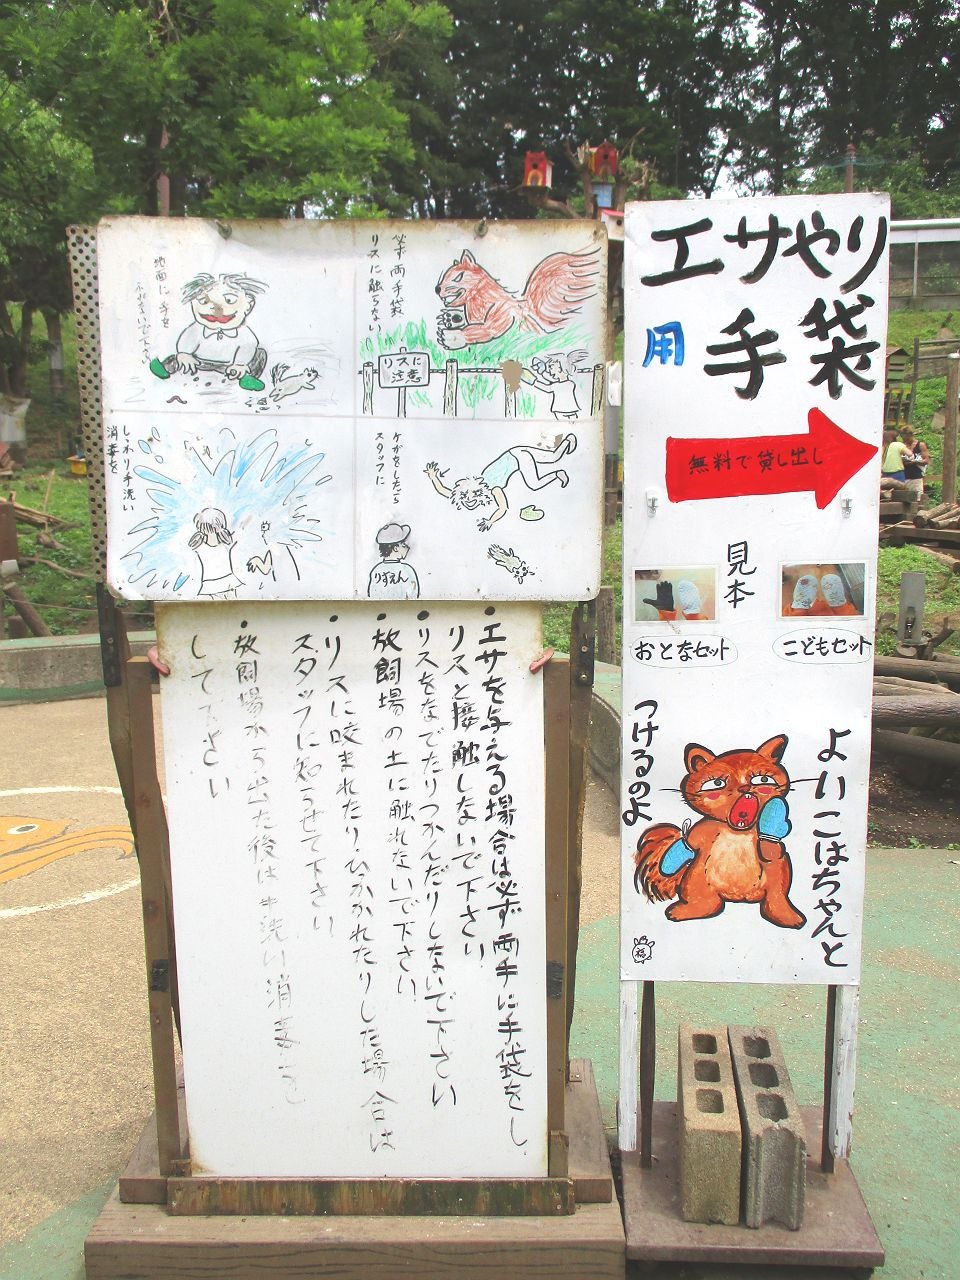 必ず両手袋
リスに触らない
リスに
注意
地面に手を
ふれないで下さい
ケガをしたら
スタッフに
りすえん
しっかり手洗い
消毒を
・エサを与える場合は必ず両手に手袋をし、
リスと接触しないで下さい
・リスをなでたりつかんだりしないで下さい
・放飼場の土に触れないで下さい
・リスに咬まれたり、ひかかれたりした場合は
スタッフに知らせて下さい
・放飼場から出た後は手洗い消毒を
して下さい
エサやり
用手袋
無料で貸し出し
見本
おとなセット
こどもセット
よいこはちゃんと
つけるのよ
福